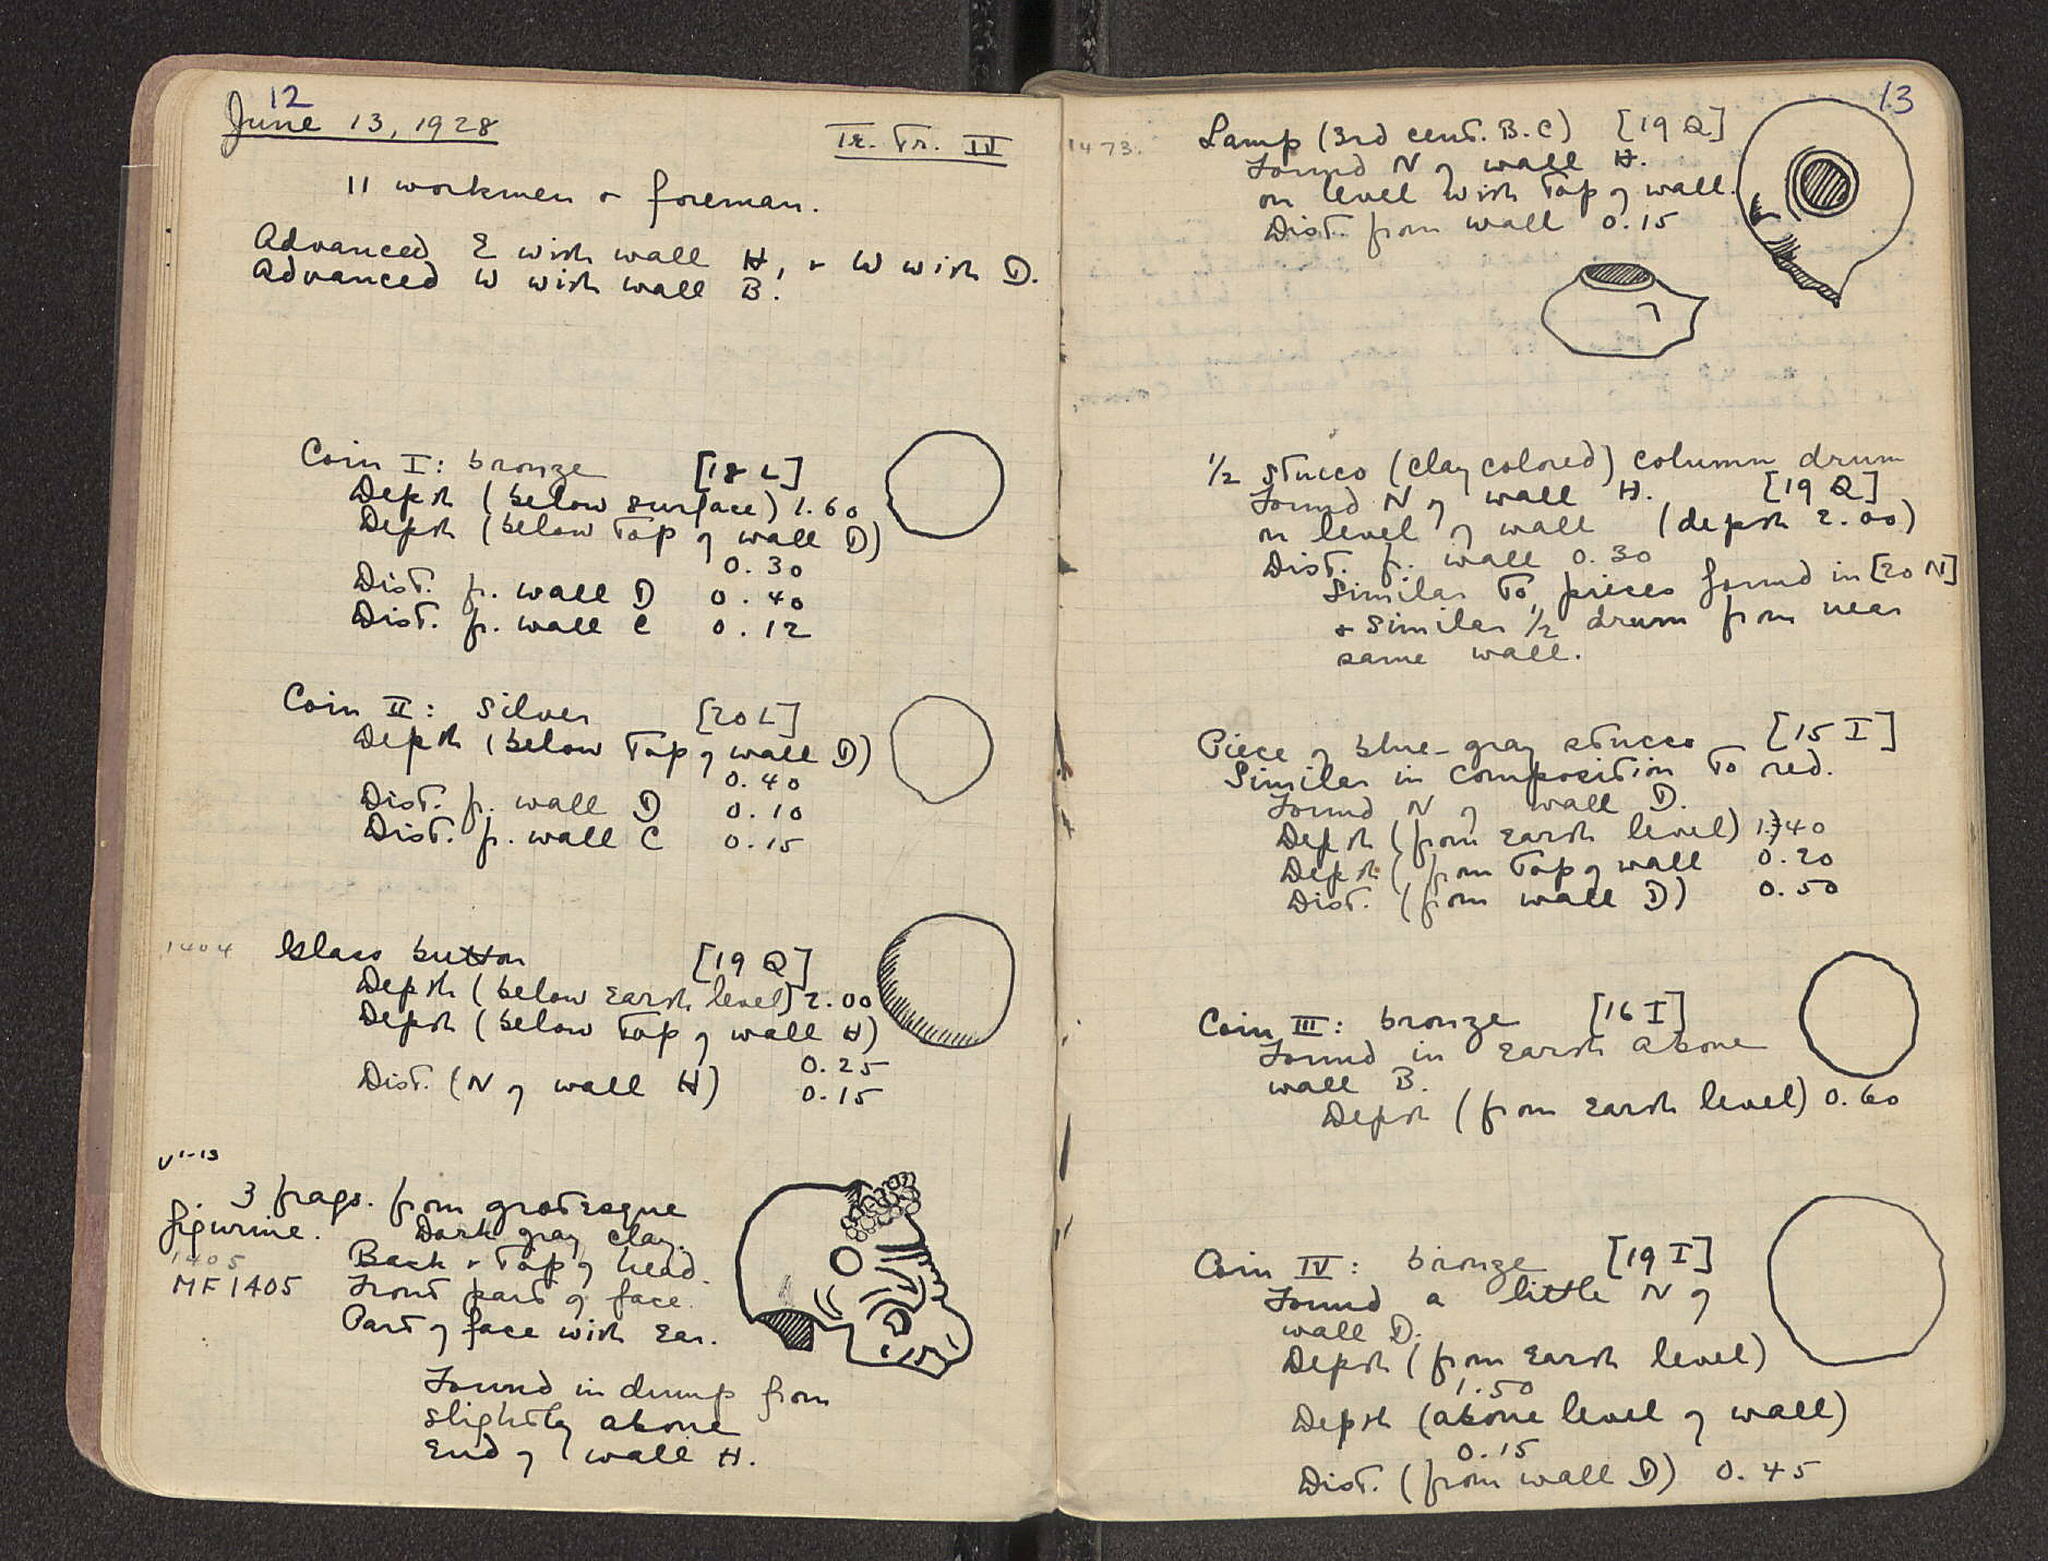 12
June 13, 1928
Tr. Tr. IV
11 workmen + foreman.
Advanced E with wall H, + W with D.
Advanced W with wall B.
Coin I: bronze [18 L]
Depth (below surface) 1.60
Depth (below top of wall D)
0.30
Dist. fr. wall D 0.40
Dist. fr. wall C 0.12
Coin II: silver [20 L]
Depth (below top of wall D)
0.40
Dist. fr. wall D 0.10
Dist. fr. wall C 0.15
1404 Glass button [19 Q]
Depth (below earth level) 2.00
Depth (below top of wall H)
0.25
Dist. (N of wall H) 0.15
V1-13
3 frags. from grotesque
figurine. Dark gray clay.
1405 Back + top of head.
MF 1405 Front part of face.
Part of face with ear.
Found in dump from
slightly above
end of wall H.
13
1473. Lamp (3rd cent. B.C) [19 Q]
Found N of wall H.
on level with top of wall.
Dist. from wall 0.15
1/2 stucco (clay colored) column drum
Found N of wall H. [19 Q]
on level of wall (depth 2.00)
Dist. fr. wall 0.30
Similar to pieces found in [20 N]
+ similar 1/2 drum from near
same wall.
Piece of blue-gray stucco [15 I]
Similar in composition to red.
Found N of wall D.
Depth (from earth level) 1.40
Depth (from top of wall 0.20
Dist. (from wall D) 0.50
Coin III: bronze [16 I]
Found in earth above
wall B.
Depth (from earth level) 0.60
Coin IV: bronze [19 I]
Found a little N of
wall D.
Depth (from earth level)
1.50
Depth (above level of wall)
0.15
Dist. (from wall D) 0.45